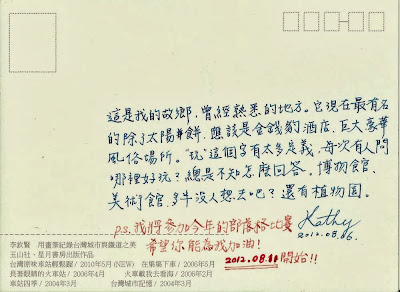 這是我的故鄉,曾經熟悉的地方。它現在最有名
的除了太陽餅,應該是金錢豹酒店,巨大豪華
風俗場所。"玩"這個字有太多意義,每次有人問
哪裡好玩?總是不知怎麼回答。博物館、
美術館,多半沒人想去吧?還有植物園。
Kathy
2012.08.06.
p.s. 我將參加今年的部落格比賽
希望你能為我加油!
2012.08.11 開始!!
李欽賢 用畫筆紀錄台灣城市與鐵道之美
玉山社.星月書房出版作品
台灣原味車站輕鬆蹓/2010年5月(NEW) 在集集下車/2006年5月
長著眼睛的火車站/2006年4月 火車載我去看海/2006年2月
車站四季/2004年3月 台灣城市記憶/2004年3月